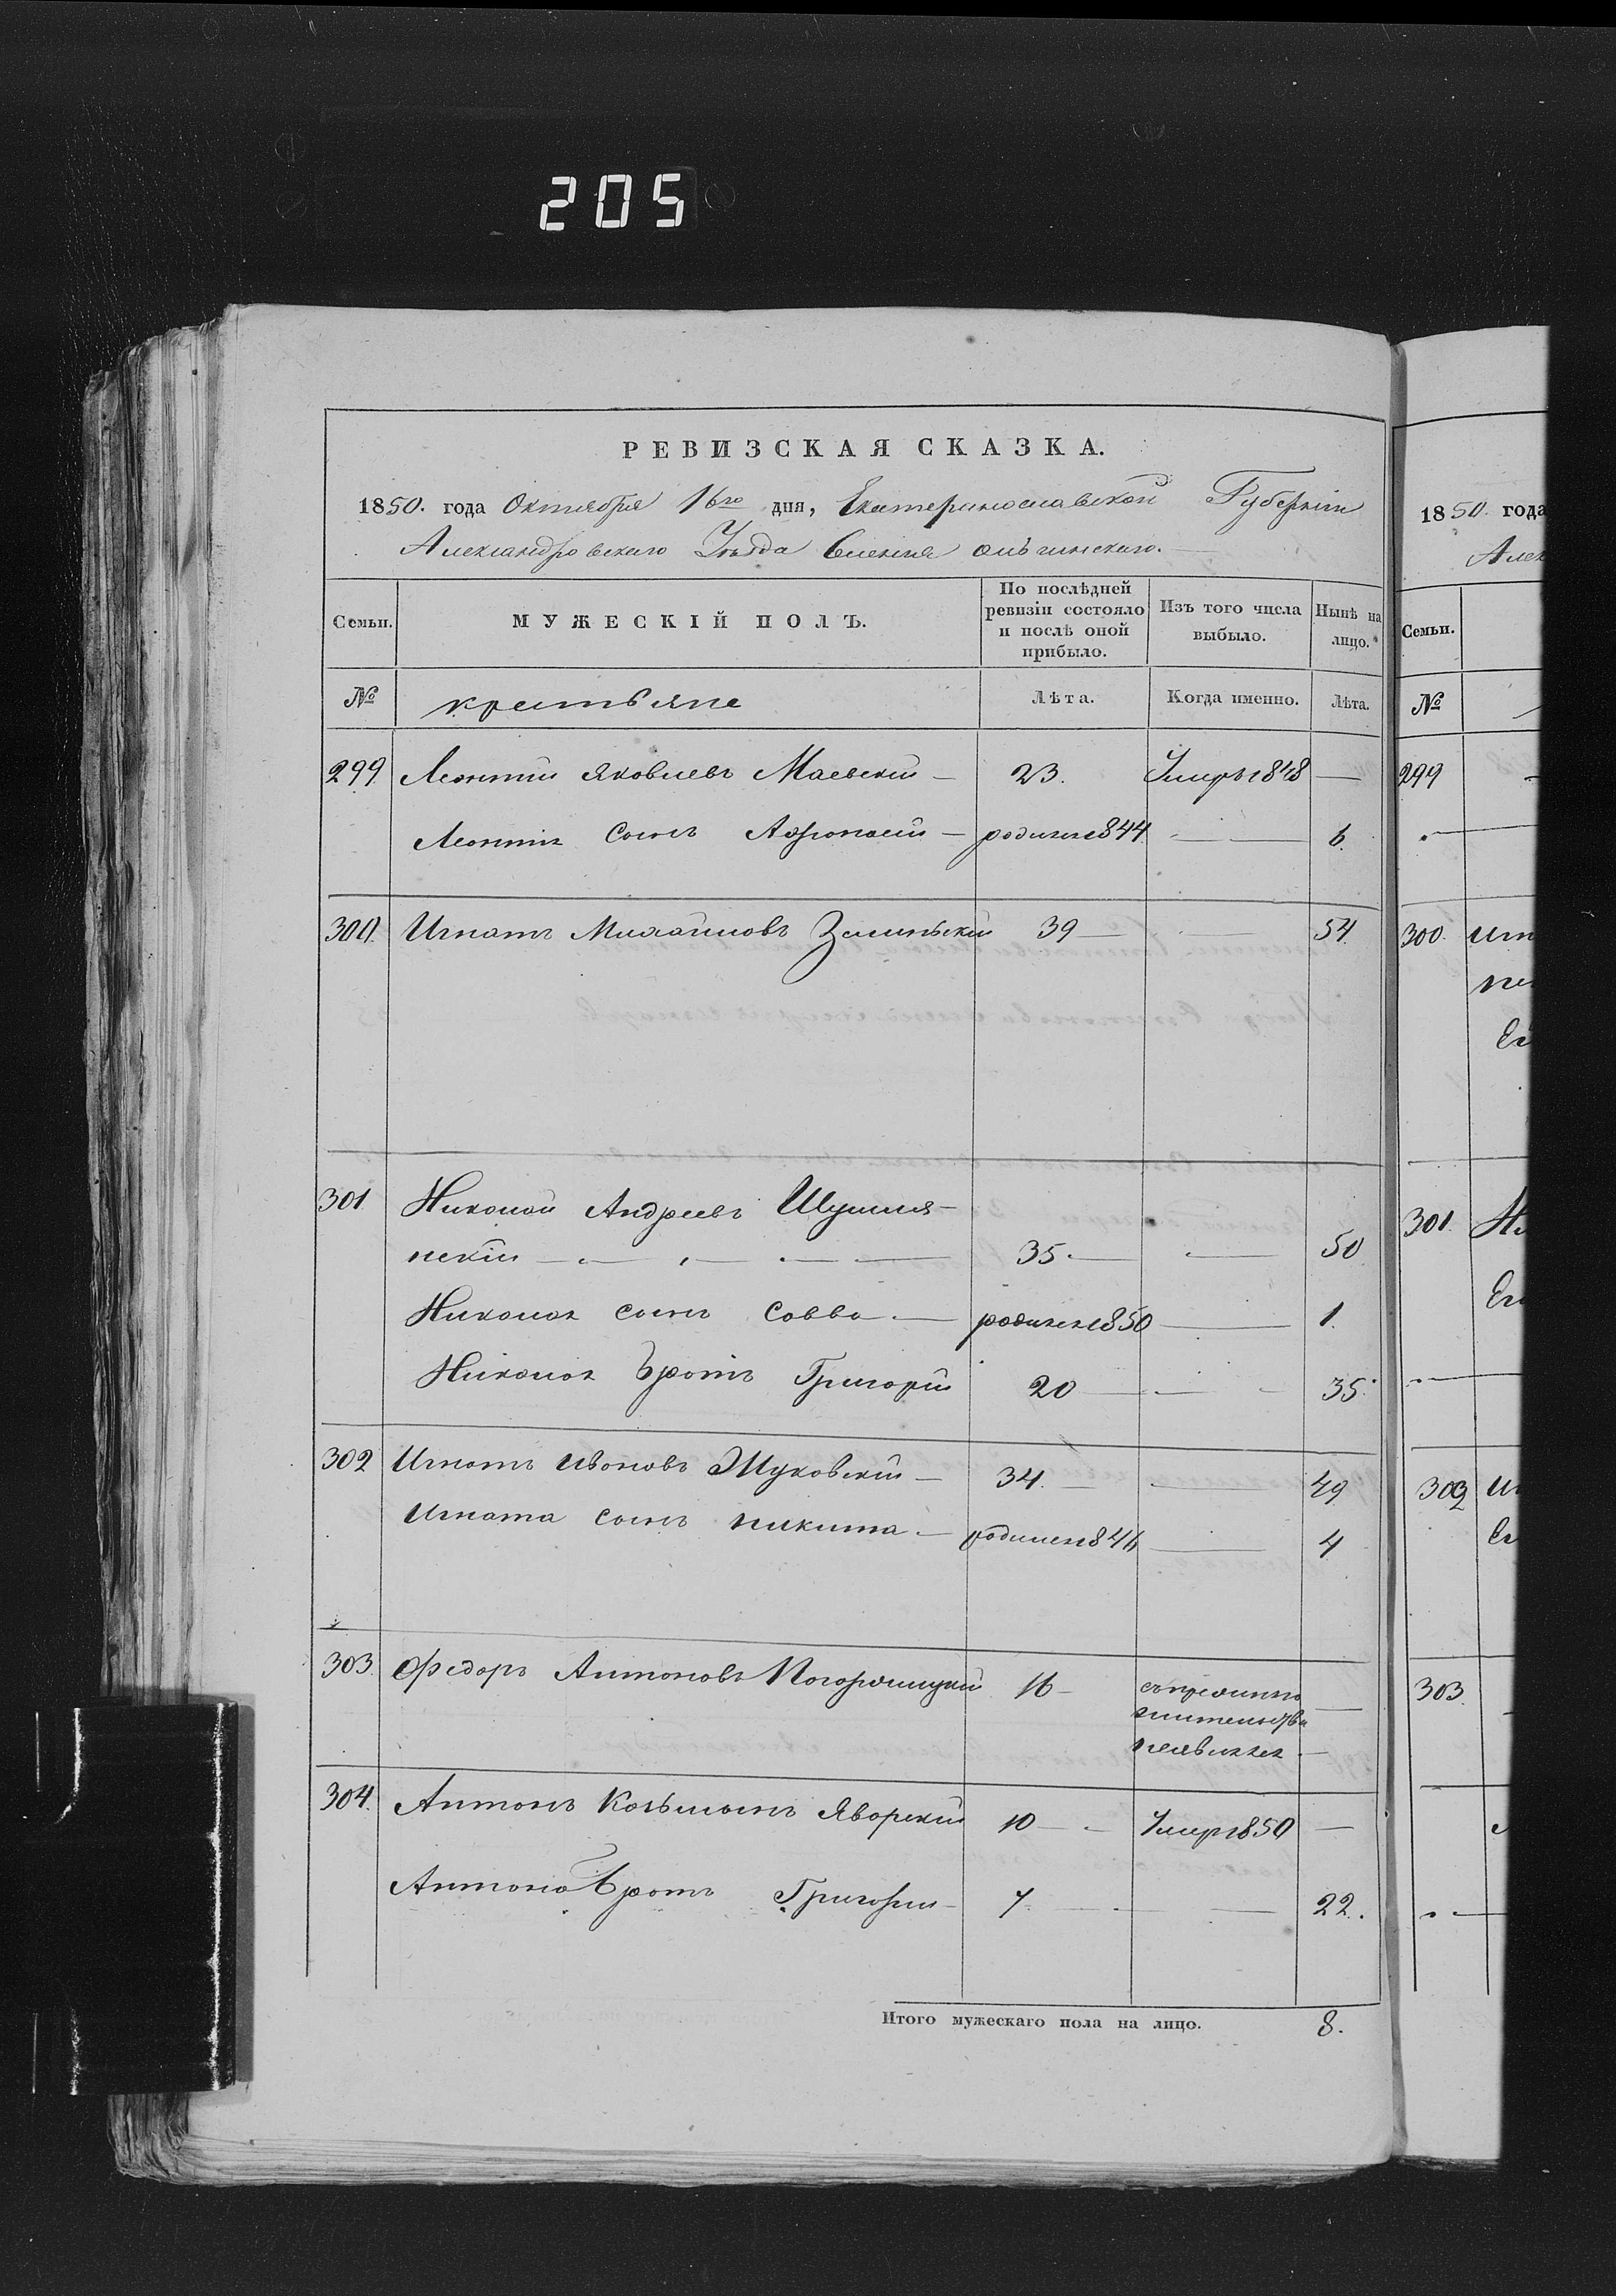 205
РЕВИЗСКАЯ СКАЗКА.
1850. года Октября 16го дня, Екатеринославской Губерніи
Александровскаго Уѣзда Селенія
Семьи. МУЖЕСКІЙ ПОЛЪ. По послѣдней ревизіи состояло и послѣ оной прибыло. Изъ того числа выбыло. Нынѣ на лицо.
№ крестьяне Лѣта. Когда именно. Лѣта.
299. Леонтій Яковлевъ Маевскій — 23. Умеръ 1848 —
Леонтія Сынъ Афонасій — родился 1844 — 6.
300. Игнатъ Михайловъ 39 — — 54
301 Николай Андреевъ Шумля-
нскій — 35 — — 50
Николая сынъ Савва — родился 1850 — 1.
Николая Братъ Григорій 20 — — 35.
302 Игнатъ Ивановъ Жуковскій — 34. — — 49
Игната сынъ никита — родился 1846 — 4
303 Федоръ Антоновъ 16 —
жительства —
неявился —
304. Антонъ Козьминъ Яворскій 10 — Умеръ 1850 —
Антона Братъ Григорій — 7. — — 22.
Итого мужескаго пола на лицо. 8.
1850. года
Алек
Семьи.
№
299
300. Игн
301. Ни
Ег
302 Иг
Ег
303.